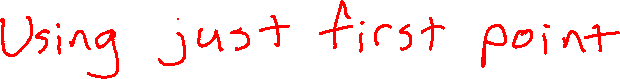 Using just first point